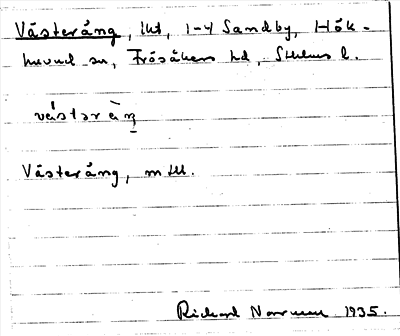 Västeräng, lht, 1-4 Sandby, Hök-
huvud sn, Frösåkers hd, Sthlms l.
västəràŋ
Västeräng, m tll.
Richard 1935.